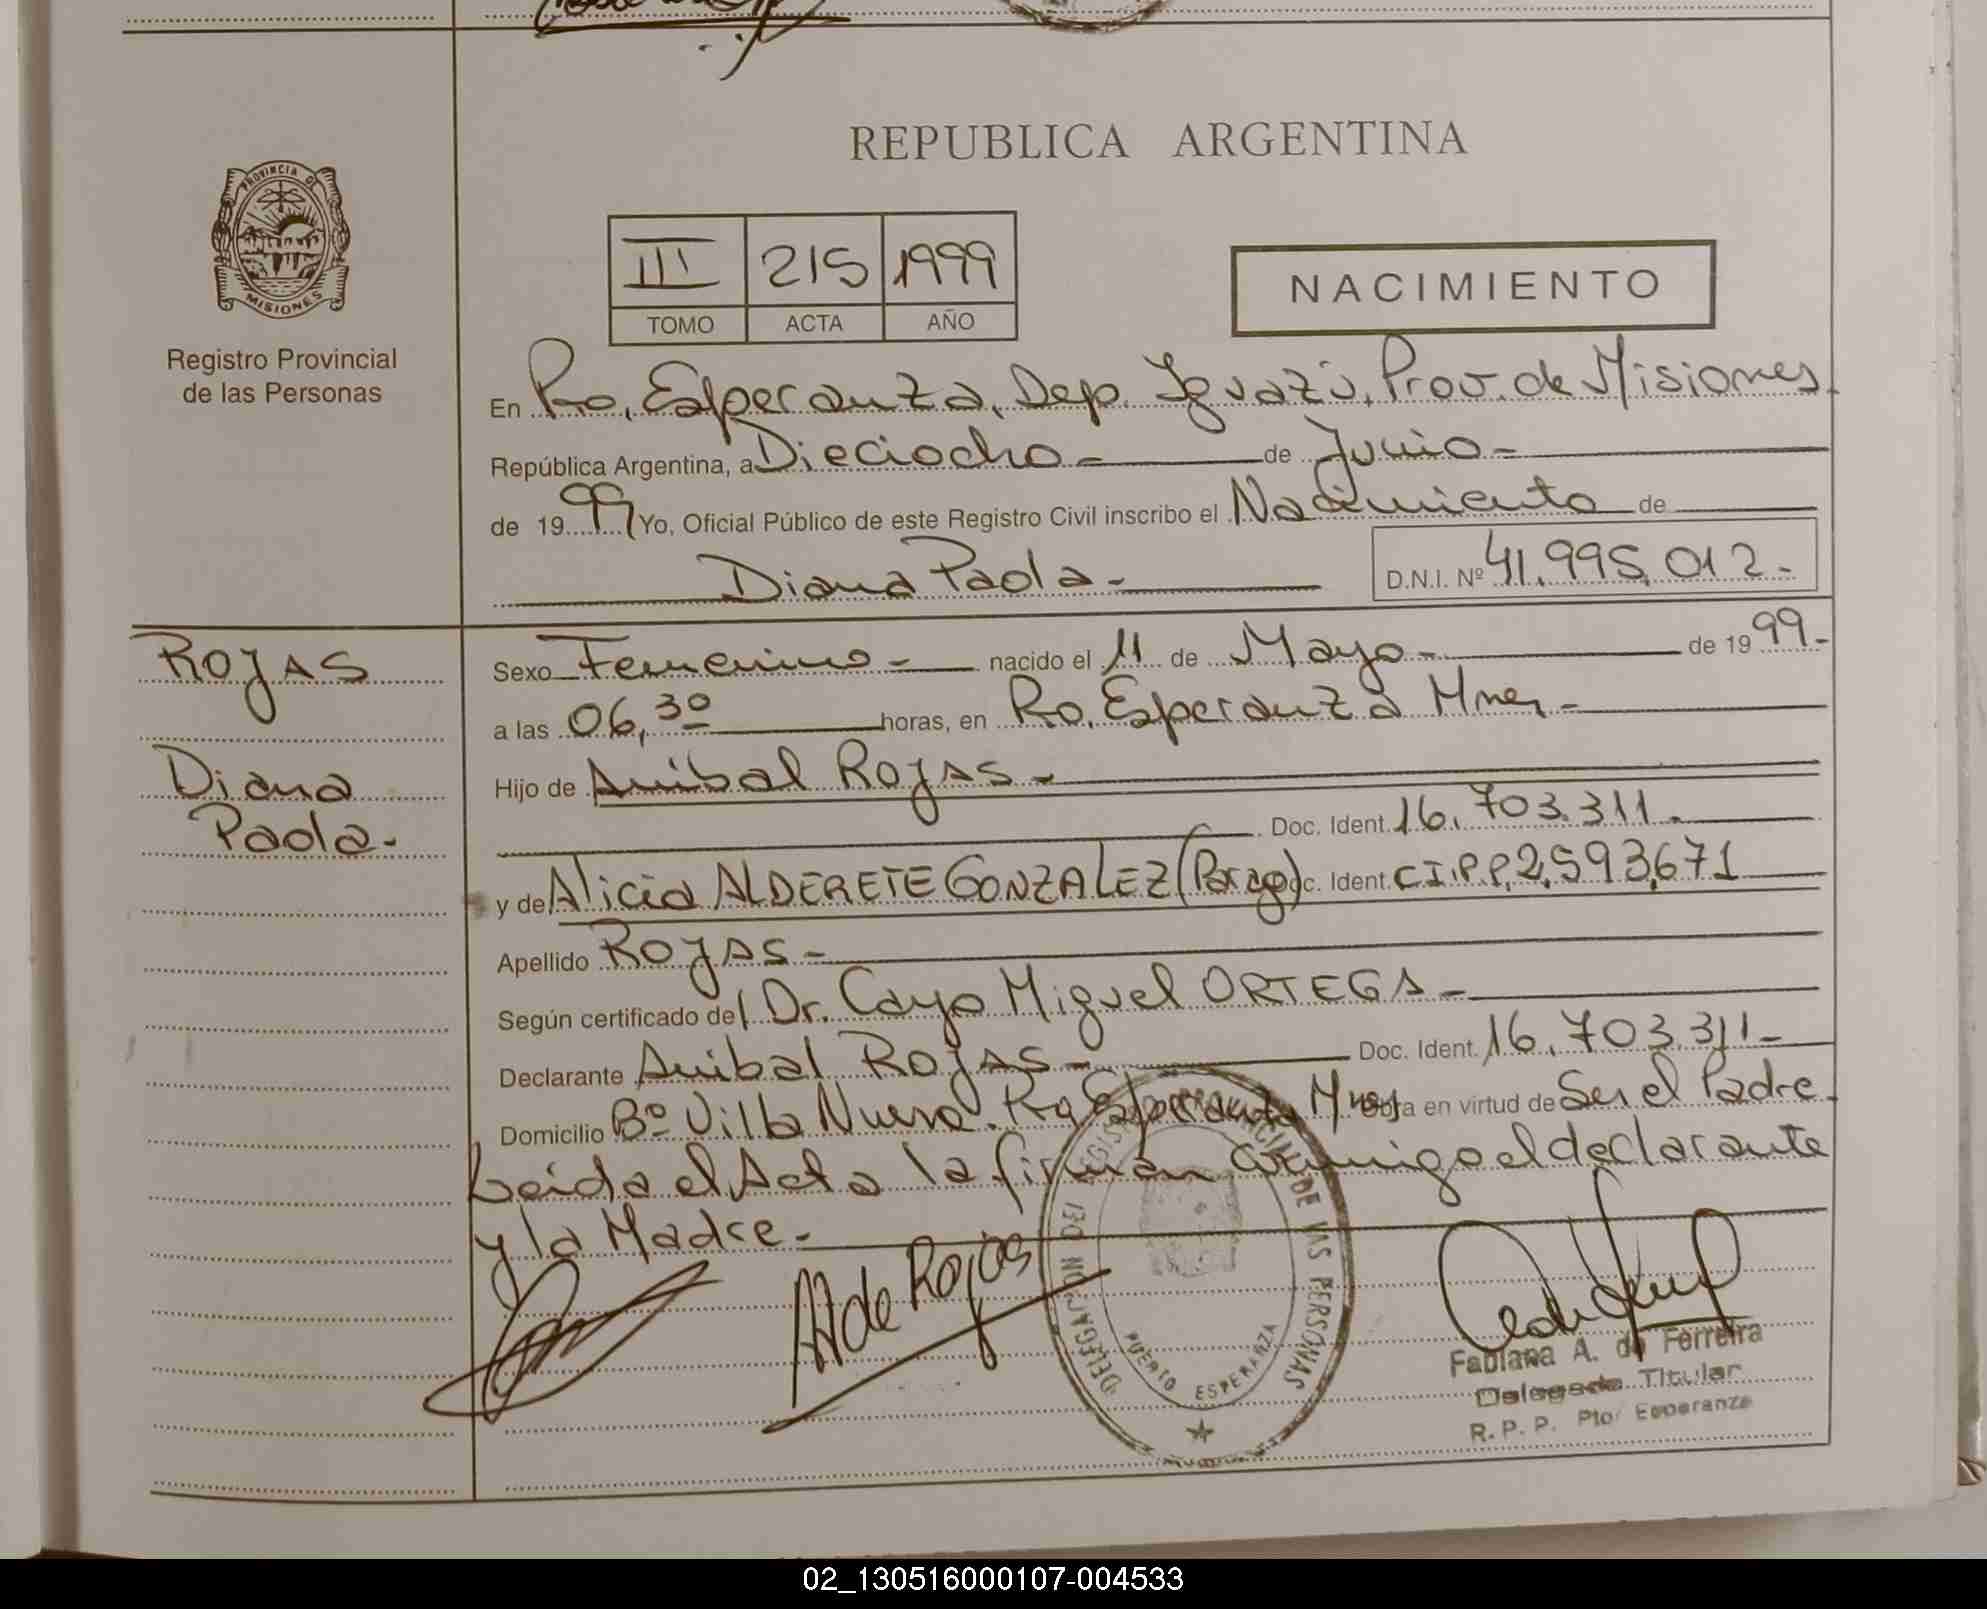 REPUBLICA ARGENTINA
PROVINCIA DE
MISIONES
Registro Provincial
de las Personas
III 215 1999
TOMO ACTA AÑO
NACIMIENTO
En Pto. Esperanza, Dep. Iguazú, Prov. de Misiones.
República Argentina, a Dieciocho - de Junio -
de 1999 Yo, Oficial Público de este Registro Civil inscribo el Nacimiento de
Diana Paola - D.N.I. Nº 41.995.012.-
ROJAS
Diana
Paola.-
Sexo Femenino - nacido el 11 de Mayo - de 1999.-
a las 06,30 horas, en Pto. Esperanza Mnes.-
Hijo de Anibal ROJAS -
Doc. Ident. 16.703.311.-
y de Alicia ALDERETE GONZALEZ (Parag) Doc. Ident. C.I.P.P. 2,593,671
Apellido ROJAS -
Según certificado del Dr. Cayo Miguel ORTEGA -
Declarante Anibal ROJAS - Doc. Ident. 16.703.311-
Domicilio Bº Villa Nueva. Pto Esperanza Mnes Obra en virtud de Ser el Padre.
Leida el Acta la firman conmigo el declarante
y la Madre.-
A A de Rojas
DELEGACION DEL REGISTRO PROVINCIAL DE LAS PERSONAS
PUERTO ESPERANZA
Fabiana A. de Ferreira
Delegada Titular
R. P. P. Pto. Esperanza
02_130516000107-004533